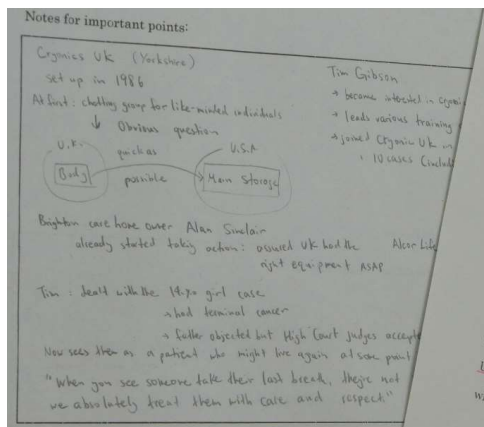 Notes for important points:
Cryonics UK (Yorkshire)
set up in 1986
At first: chatting group for like-minded individuals
↓ Obvious question
U.K.
quick as
possible
U.S.A
Body
Main Storage
Tim Gibson
→ become interested in
→ leads various training
→ joined Cryonic UK in
10 cases
Brighton care home owner Alan Sinclair
already started taking action: assured UK had the
right equipment ASAP
Alcor Life
Tim: dealt with the 14yo girl case
→ had terminal cancer
→ father objected but High Court judges
Now sees them as a patient who might live again at some point
"When you see someone take their last breath, they're not
we absolutely treat them with care and respect."